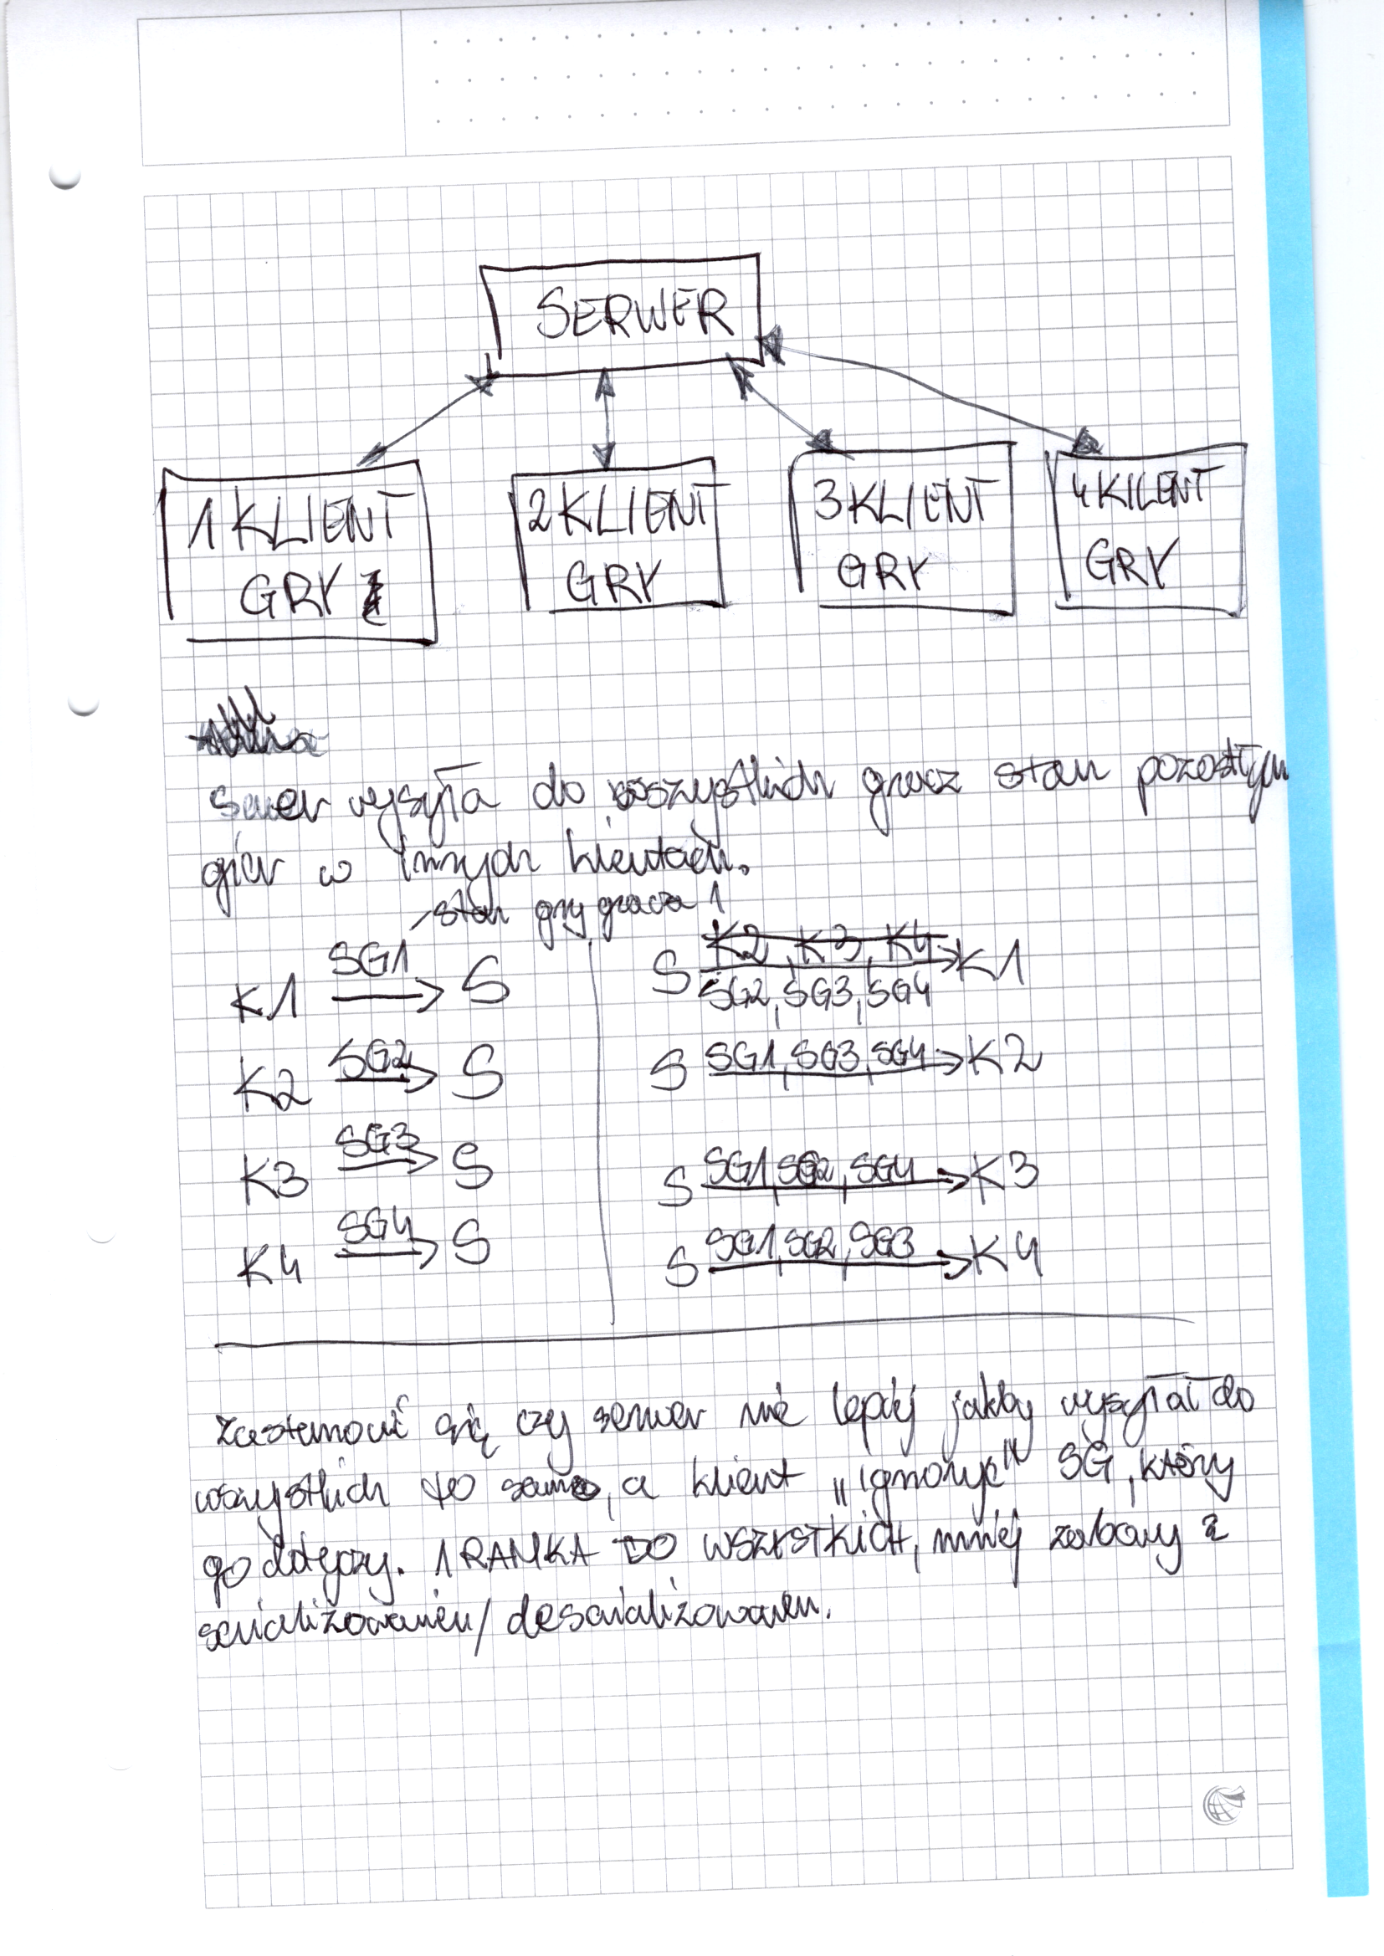 SERWER
1 KLIENT
GRY
2 KLIENT
GRY
3 KLIENT
GRY
4 KILENT
GRY
Serwer wysyła do wszystkich gracz stan pozostłym
gier w innych klientach.
stan gry gracza 1
K1 SG1 S
K2 SG2 S
K3 SG3 S
K4 SG4 S
S K2, K3, K4 K1
SG2, SG3, SG4
S SG1, SG3, SG4 K2
S SG1, SG2, SG4 K3
S SG1, SG2, SG3 K4
Zastanowić się czy serwer nie lepiej jakby wysyłał do
wszystkich to samo, a klient „ignoruje" SG, który
go dotyczy. 1 RAMKA DO WSZYSTKICH, mniej zabawy z
serializowaniem/deserializowaniem.